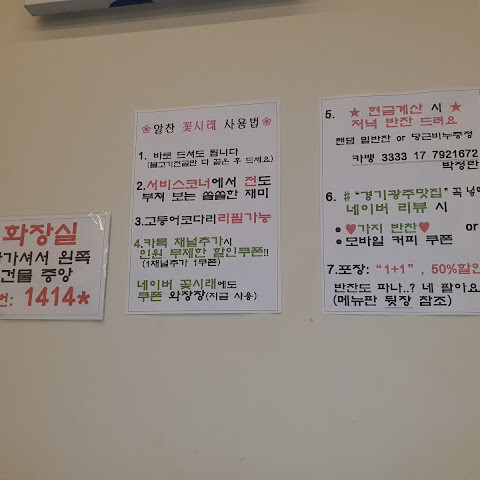 화장실
가셔서 왼쪽
건물 중앙
번: 1414*
알찬 꽃시래 사용법
1. 바로 드셔도 됩니다
(불고기전골만 다 끓은 후 드세요)
2.서비스코너에서 전도
부쳐 보는 쏠쏠한 재미
3.고등어코다리리필가능
4.카톡 채널추가시
인원 무제한 할인쿠폰!!
(1채널추가 1쿠폰)
네이버 꽃시래에도
쿠폰 와장창(지금 사용)
5. ★ 현금계산 시 ★
저녁 반찬 드려요
랜덤 밑반찬 or 당근비누증정
카뱅 3333 17 7921672
박정란
6. #"경기광주맛집" 꼭 넣어
네이버 리뷰 시
• ♥가지 반찬♥ or
• 모바일 커피 쿠폰
7.포장: "1+1", 50%할인
반찬도 파나..? 네 팔아요
(메뉴판 뒷장 참조)